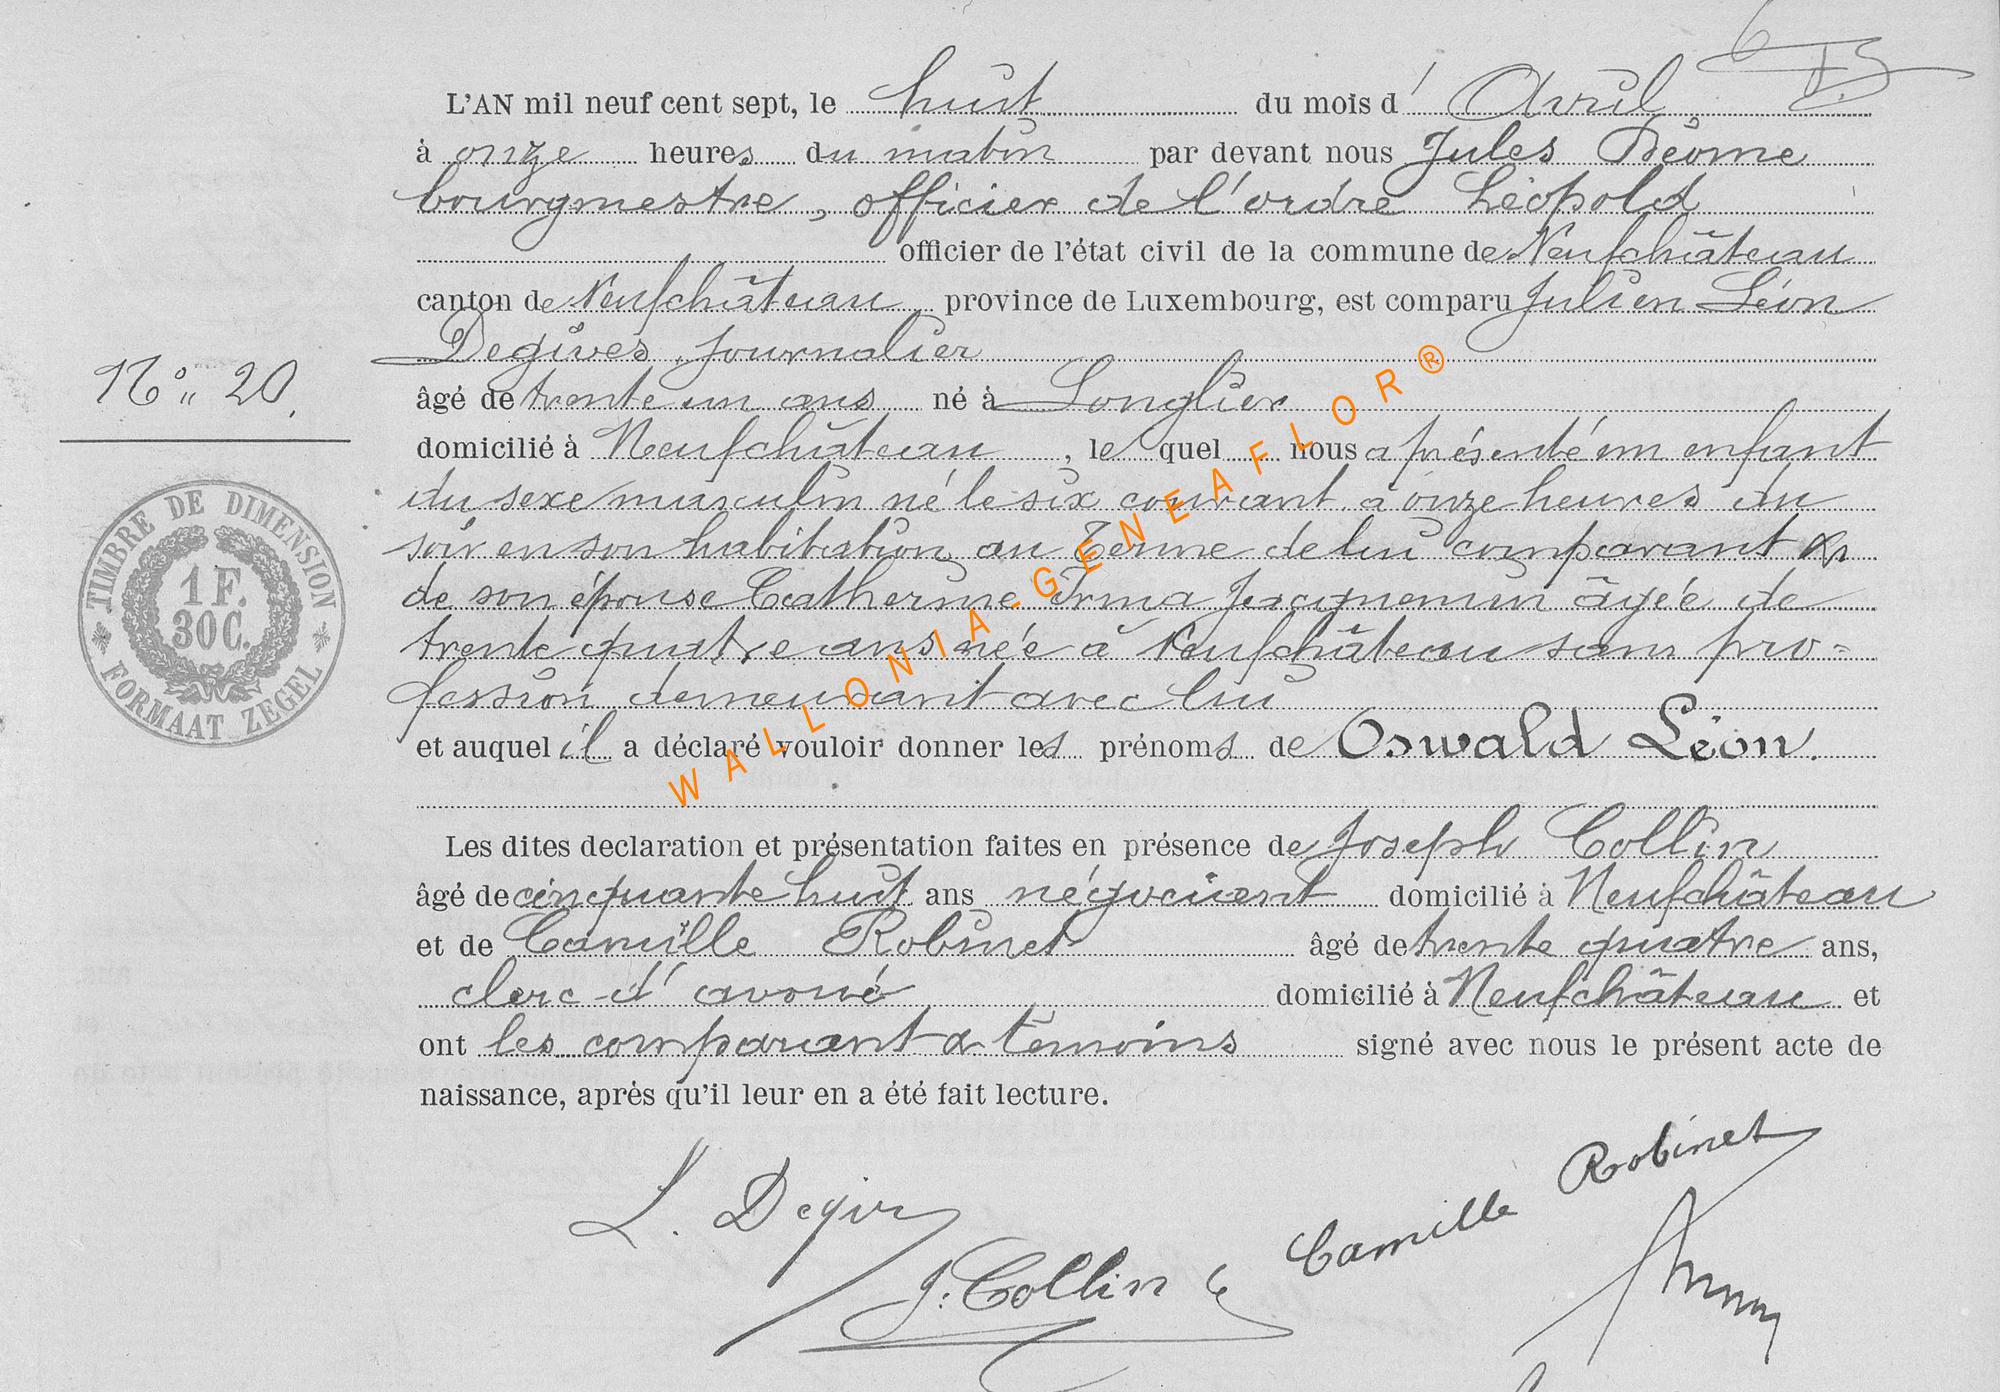 L'AN mil neuf cent sept, le huit du mois d' Avril
à onze heures du matin par devant nous Jules Déome
bourgmestre, officier de l'ordre Léopold
officier de l'état civil de la commune de Neufchâteau
canton de Neufchâteau province de Luxembourg, est comparu Julien Léon
Degives, journalier
N° 20.
âgé de trente un ans né à Longlier
domicilié à Neufchâteau, le quel nous a présenté un enfant
du sexe masculin né le six courant à onze heures du
soir en son habitation au Terme de lui comparant &
de son épouse Catherine Irma Jacquemin âgée de
trente quatre ans née à Neufchâteau sans pro=
fession demeurant avec lui
et auquel il a déclaré vouloir donner les prénoms de Oswald Léon.
Les dites declaration et présentation faites en présence de Joseph Collin
âgé de cinquante huit ans négociant domicilié à Neufchâteau
et de Camille Robinet âgé de trente quatre ans,
clerc d'avoué domicilié à Neufchâteau et
ont les comparant & témoins signé avec nous le présent acte de
naissance, après qu'il leur en a été fait lecture.
TIMBRE DE DIMENSION
1 F.
30 C.
FORMAAT ZEGEL
WALLONIA-GENEAFLOR®
L. Degives
J. Collin
Camille Robinet